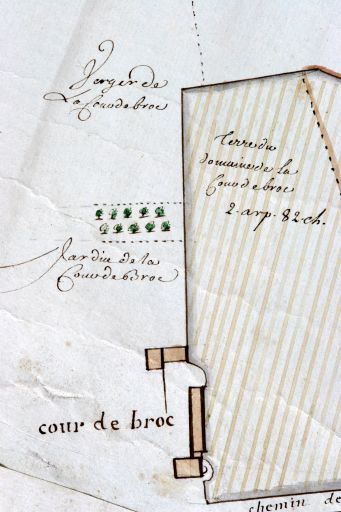 Verger de
La Cour de broc
Terre du
domaine de la
Cour de broc
2. arp. 82 ch.
Jardin de la
Cour de Broc
cour de broc
chemin de